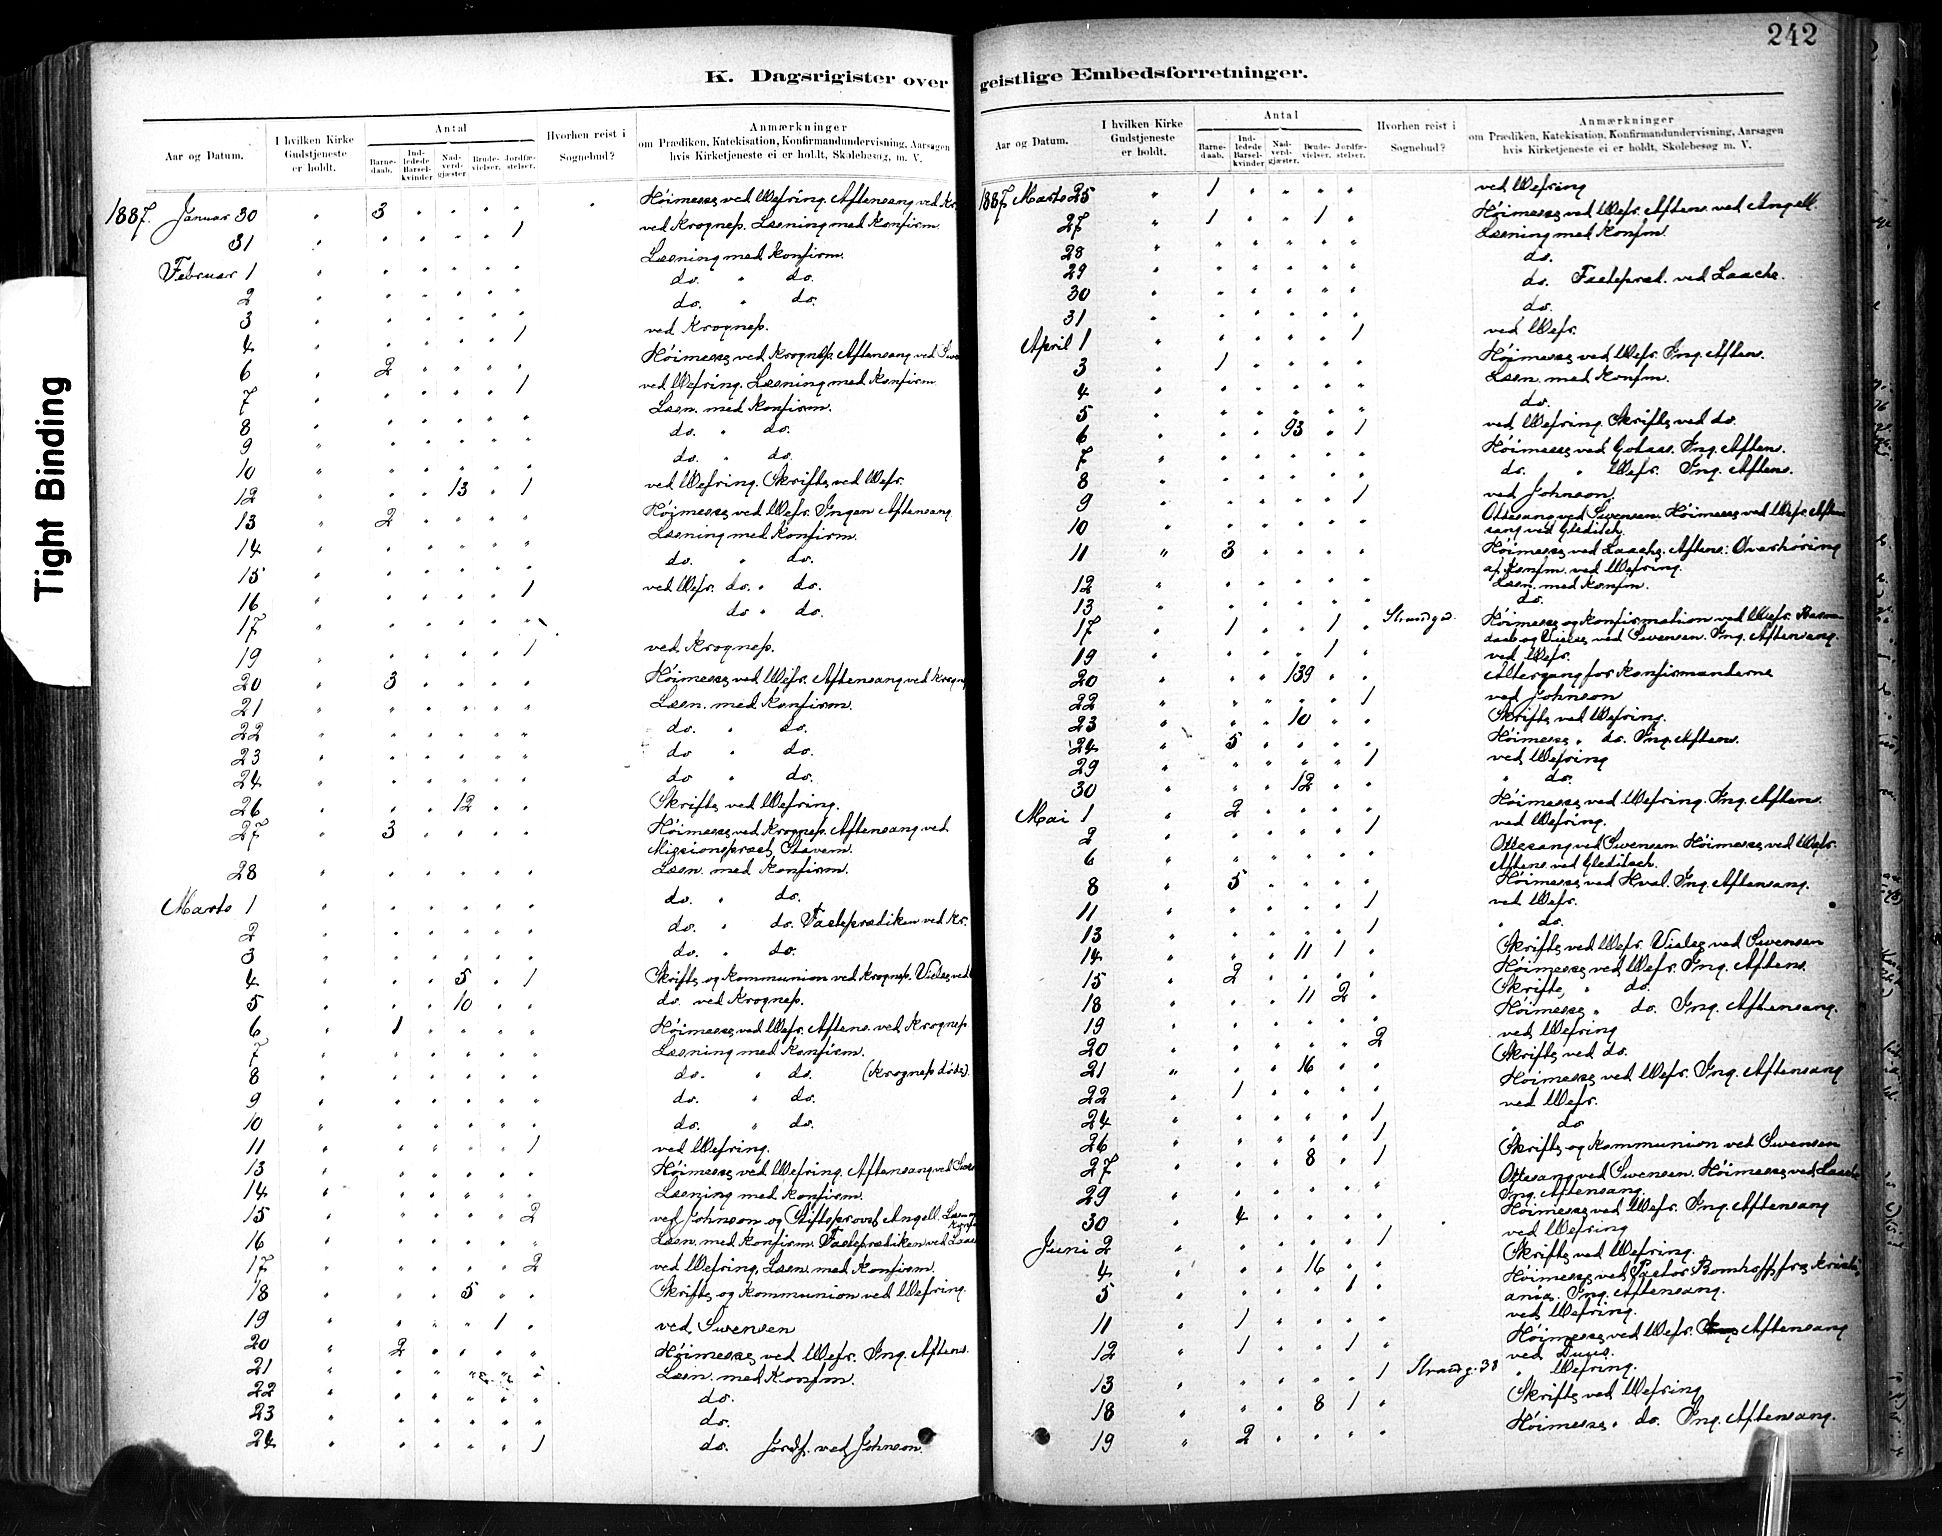 242
K. Dagsrigister over geistlige Embedsforretninger.
Tight Binding
Aar og Datum.
I hvilken Kirke Gudstjeneste er holdt.
Antal
Barnedaab.
Indledede Barselkvinder
Nadverdgjæster
Brudevielser.
Jordfæstelser.
Hvorhen reist i Sognebud?
Anmærkninger
om Prædiken, Katekisation, Konfirmandundervisning, Aarsagen
hvis Kirketjeneste ei er holdt, Skolebesøg m. V.
1887. Januar 30 " 3 Høimesse ved Wefring. Aftensang ved Kr.
31 1 ved Krogness. Læsning med Konfirm.
Februar 1 Læsning med Konfirm.
2 do. " do.
3 do. " do.
4 1 ved Krogness.
6 2 Høimesse ved Krogness. Aftensang ved
7 1 ved Wefring. Læsning med Konfirm.
8 Læsn. med Konfirm.
9 do. " do.
10 do. " do.
12 13 1 ved Wefring. Skrifte ved Wefr.
13 2 Høimesse ved Wefr. Ingen Aftensang
14 Læsning med Konfirm.
15 do. " do.
16 1 ved Wefr. do. " do.
17 do " do.
19 1 ved Krogness.
20 3 Høimesse ved Wefr. Aftensang ved
21 Læsn. med Konfirm.
22 do. " do.
23 do " do.
24 do " do.
26 12 Skrifte ved Wefring.
27 3 Høimesse ved Krogness. Aftensang ved
Missionsprest Stavem.
28 Læsn. med Konfirm.
Marts 1 do. " do.
2 do. " do. Fasteprædiken ved Kr.
3 do. " do.
4 5 1 Skrifte og Kommunion ved Krogness. Vielse ved
5 10 do. ved Krogness.
6 1 Høimesse ved Wefr. Aftens. ved Krogness
7 Læsning med Konfirm.
8 do. " do. (Krogness døde).
9 do. " do.
10 do. " do.
11 1 ved Wefring.
13 Høimesse ved Wefring. Aftensang ved
14 Læsning med Konfirm.
15 2 ved Johnson og Stiftsprovst Angell.
16 Læsn. med Konfirm. Fasteprædiken ved
17 2 ved Wefring. Læsn. med Konfirm.
18 5 Skrifte og Kommunion ved Wefring.
19 1 ved Swensen
20 2 Høimesse ved Wefr. Ing. Aftens.
21 Læsn. med Konfm.
22 do.
23 do.
24 1 do. Jordf. ved Johnson.
Aar og Datum.
I hvilken Kirke Gudstjeneste er holdt.
Antal
Barnedaab.
Indledede Barselkvinder
Nadverdgjæster.
Brudevielser.
Jordfæstelser.
Hvorhen reist i Sognebud?
Anmærkninger
om Prædiken, Katekisation, Konfirmandundervisning, Aarsagen
hvis Kirketjeneste ei er holdt, Skolebesøg m. V.
1887. Marts 25 1 ved Wefring
27 1 1 Høimesse ved Wefr. Aftens. ved Angell.
28 Læsning med Konfm.
29 do.
30 do. Fastepræd. ved Laache.
31 do.
April 1 1 ved Wefr.
3 1 Høimesse ved Wefr. Ing. Aftens.
4 Læsn. med Konfm.
5 do.
6 93 1 ved Wefring. Skrifte ved do.
7 Høimesse ved Gotaas. Ing. Aftens.
8 do. " Wefr. Ing. Aftens.
9 1 ved Johnson.
10 Ottesang ved Swensen. Høimesse ved Wefr. Aften-
sang ved Gleditsch.
11 3 Høimesse ved Laache. Aftens.: Overhøring
af Konfm. ved Wefring.
12 Læsn. med Konfm.
13 do.
17 1 1 Strandgd. Høimesse og Konfirmation ved Wefr. Barne-
daab og Vielse ved Swensen. Ing. Aftensang.
19 1 ved Wefr.
20 139 Altergang for Konfirmanderne
22 1 ved Johnson
23 10 Skrifte ved Wefring.
24 5 Høimesse " do. Ing. Aftens.
29 1 ved Wefring
30 12 " do.
Mai 1 2 Høimesse ved Wefring. Ing. Aftens.
2 1 ved Wefring.
6 Ottesang ved Swensen. Høimesse ved Wefr.
Aftens. ved Gleditsch.
8 5 Høimesse ved Hval. Ing. Aftensang.
11 1 ved Wefr.
13 1 " do.
14 11 1 Skrifte ved Wefr. Vielse ved Swensen
15 2 Høimesse ved Wefr. Ing. Aftens.
18 11 2 Skrifte, " do.
19 Høimesse " do. Ing. Aftensang.
20 2 ved Wefring
21 16 Skrifte ved do.
22 1 Høimesse ved Wefr. Ing. Aftensang
24 1 ved Wefr.
26 1 " do
27 8 1 Skrifte og Kommunion ved Swensen
29 Ottesang ved Swensen. Høimesse ved Laache
Ing. Aftensang.
30 4 Høimesse ved Wefr. Ing. Aftensang
Juni 2 1 ved Wefring
4 16 Skrifte ved Wefring.
5 1 Høimesse ved Pastor Bomhoff fra Kristi-
ania. Ing. Aftensang.
11 1 ved Wefring.
12 1 1 Høimesse ved Wefr. Aftensang
ved
13 1 Strandg. 38 " Wefring.
18 8 1 Skrifte ved Wefring
19 2 Høimesse " do. Ing. Aftensang.